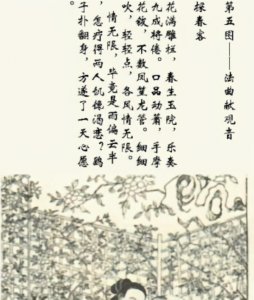 第五图——法曲献观音
探春容
花满雕栏，春生玉院，乐奏
九成将倦。口品动萧，手摩
花钹，不数凤笙龙管。细细
吹，轻轻点，各风情无限。
情无限，毕竟是雨偏云半
，怎疗得两人饥馋渴恋？鹞
子扑翻身，方遂了一天心愿
。